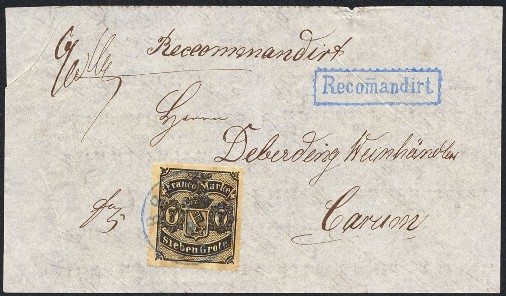 Reccommandirt
Recomandirt
Herrn
Deberding Weinhändler
Carum
Franco Marke
Sieben Grote